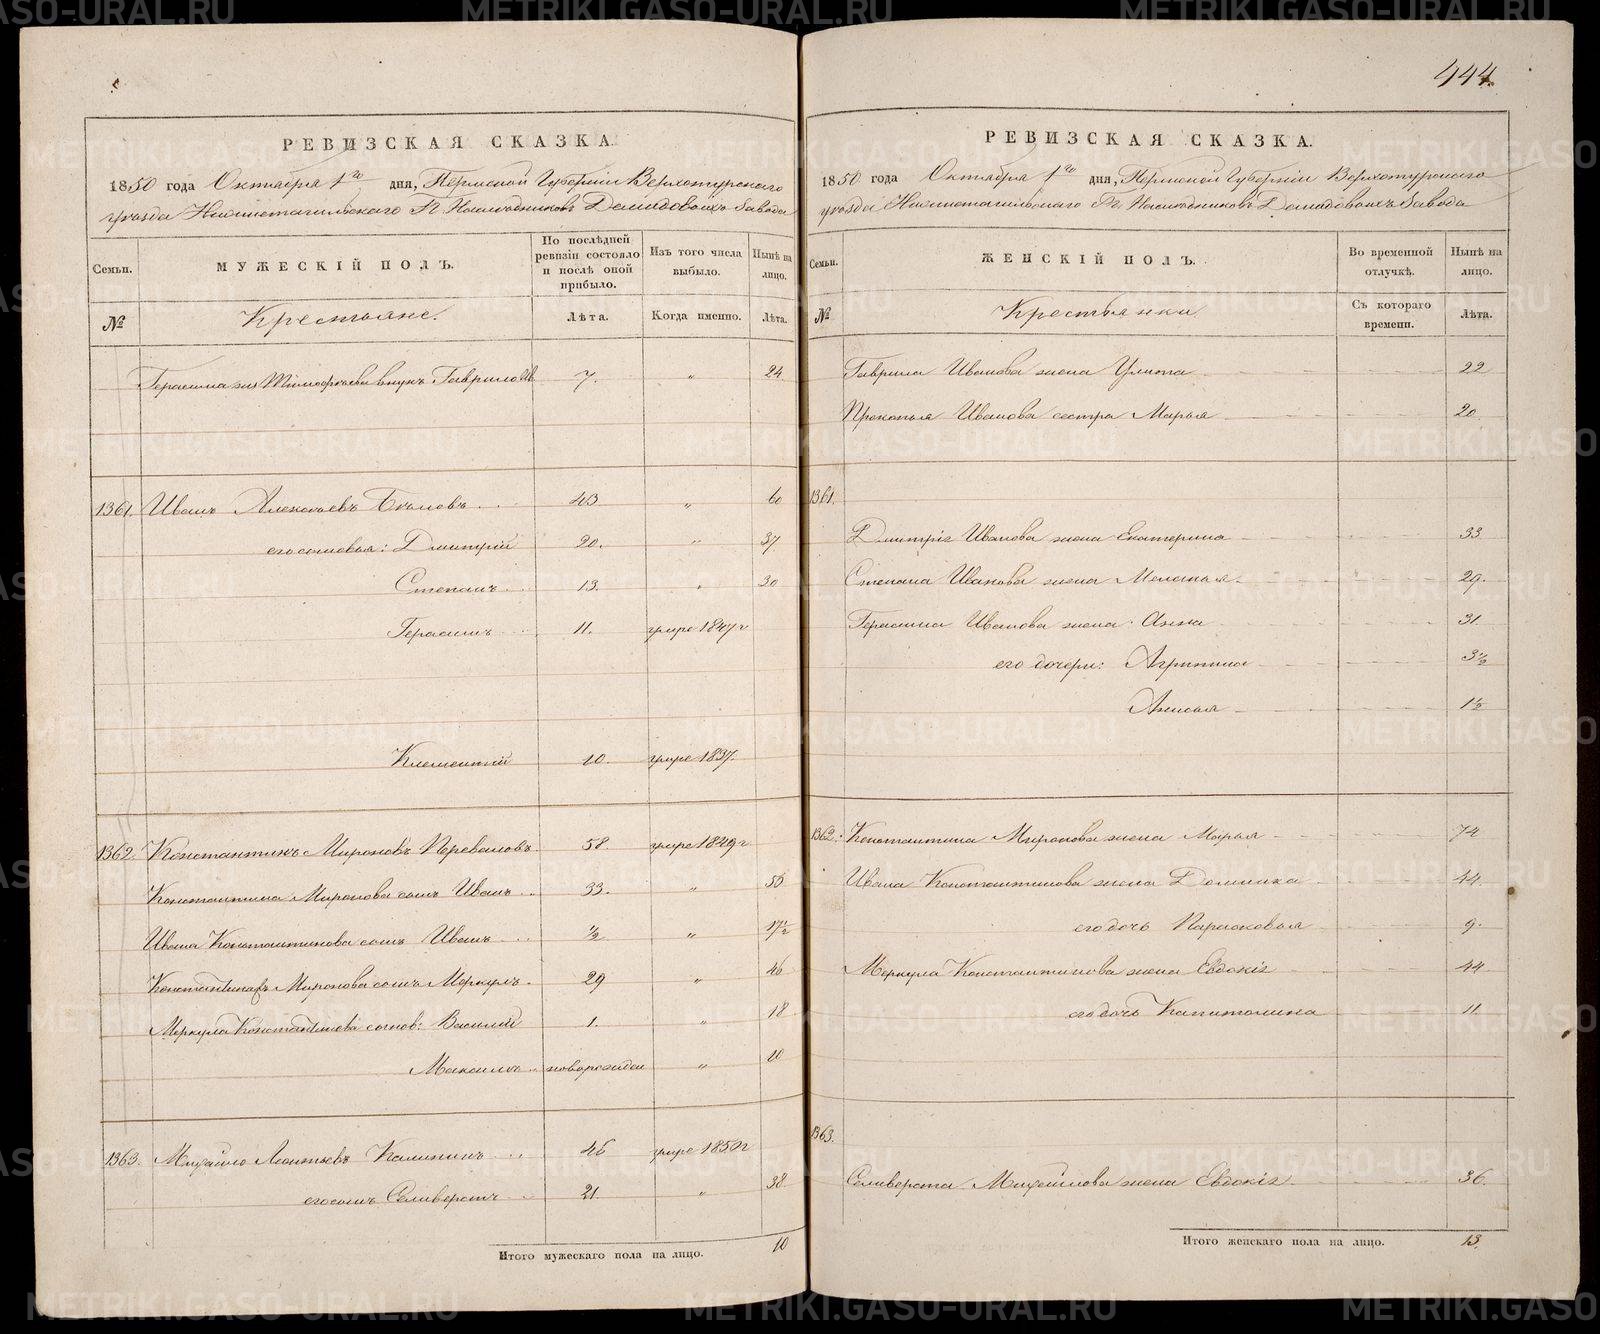 РЕВИЗСКАЯ СКАЗКА.
1850 года Октября 1го дня, Пермской Губернии Верхотурскаго
уѣзда Нижнетагильскаго Гг. Наслѣдниковъ Демидовыхъ Завода
Семьи. МУЖЕСКІЙ ПОЛЪ. По послѣдней ревизіи состояло и послѣ оной прибыло. Изъ того числа выбыло. Нынѣ на лицо.
№ Крестьяне. Лѣта. Когда именно. Лѣта.
Герасима Тимофѣева внукъ Гаврило Ив. 7. „ 24
1361. Иванъ Алексѣевъ Бѣловъ 43 „ 60
его сыновья: Дмитрій 20. „ 37
Степанъ 13. „ 30
Герасимъ 11. умре 1847 г
Клементій 10. умре 1837.
1362. Константинъ Мироновъ Переваловъ 58. умре 1849 г
Константина Миронова сынъ Иванъ 33. „ 50
Ивана Константинова сынъ Иванъ ½ „ 17½
Константина Миронова сынъ Меркулъ 29 „ 46
Меркула Константинова сынов: Василій 1. „ 18
Максимъ новорожден „ 10
1363. Михайло Леонтьевъ Калининъ 46 умре 1850 г
его сынъ Селиверстъ 21. „ 38
Итого мужескаго пола на лицо. 10
444.
РЕВИЗСКАЯ СКАЗКА.
1850 года Октября 1го дня, Пермской Губерніи Верхотурскаго
уѣзда Нижнетагильскаго Гг. Наслѣдниковъ Демидовыхъ Завода
Семьи. ЖЕНСКІЙ ПОЛЪ. Во временной отлучкѣ. Нынѣ на лицо.
№ Крестьянки Съ котораго времени. Лѣта.
Гаврила Иванова жена Улита 22
Прокопья Иванова сестра Марья 20
1361.
Дмитрія Иванова жена Екатерина 33
Степана Иванова жена Меланья 29.
Герасима Иванова жена Анна 31
его дочери: Агрипина 3½
Анисья 1½
1362. Константина Миронова жена Марья 74
Ивана Константинова жена Домника 44
его дочь Парасковья 9.
Меркула Константинова жена Евдокія 44
его дочь Капитолина 11
1363.
Селиверста Михайлова жена Евдокія 36.
Итого женскаго пола на лицо. 13.
METRIKI.GASO-URAL.RU